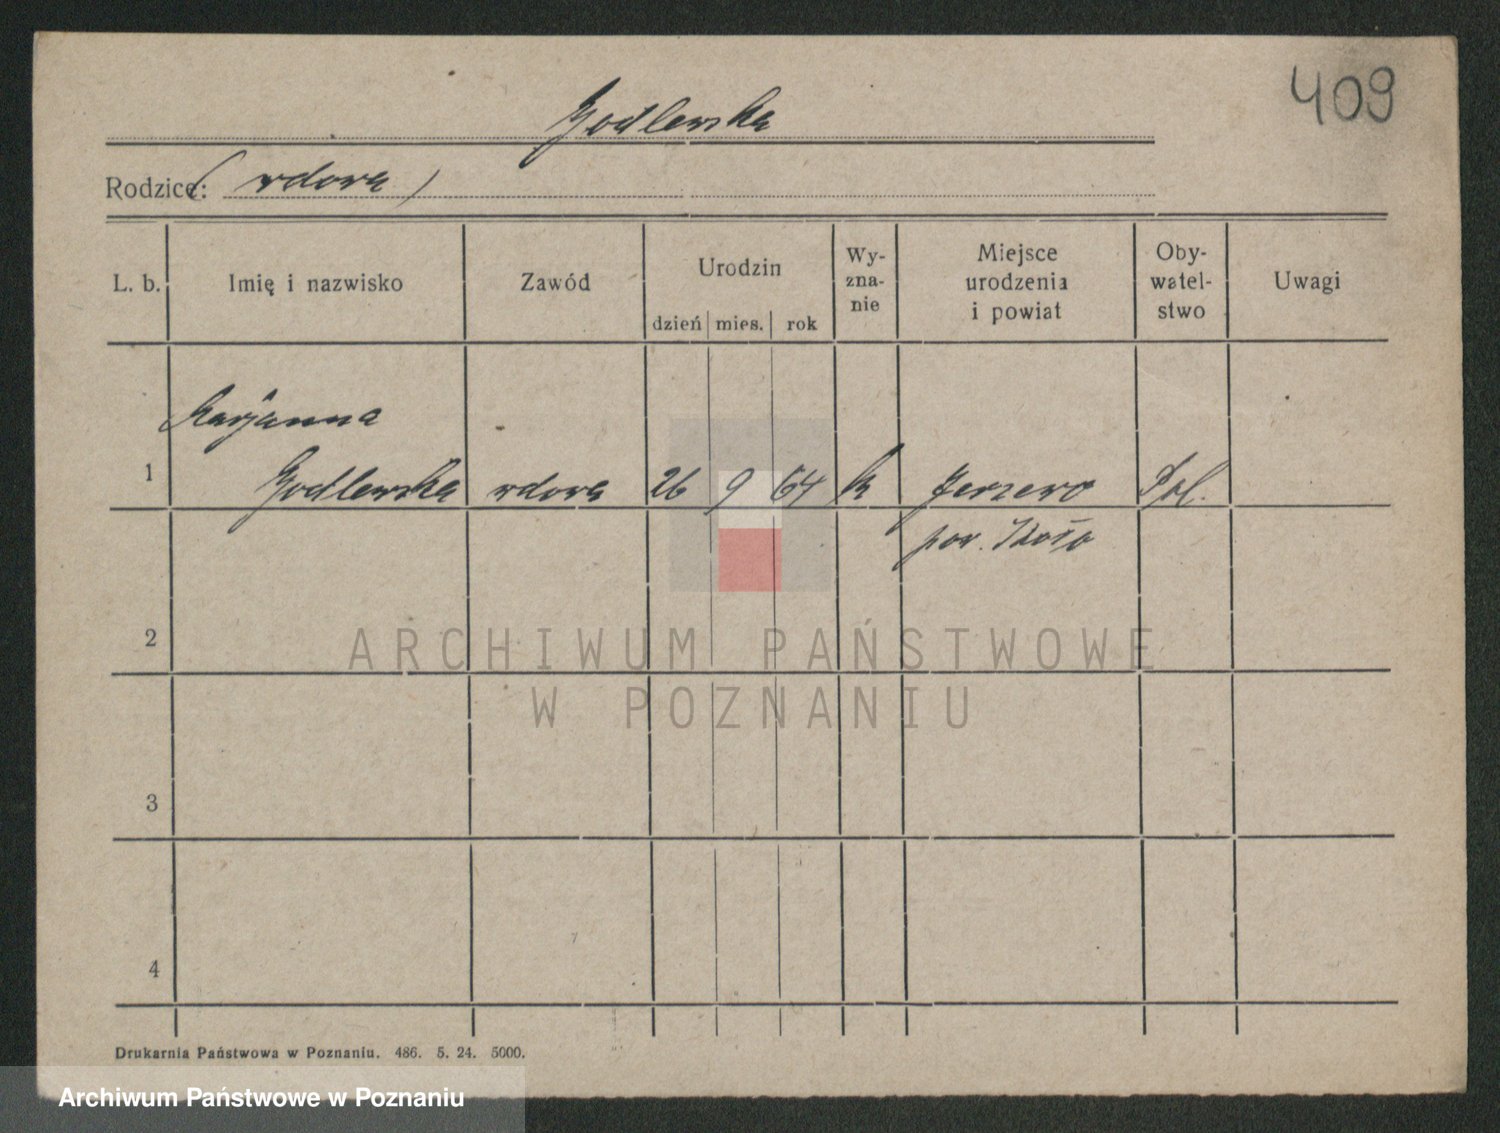 409
Godlewska
Rodzice: (wdowa)
L. b. Imię i nazwisko Zawód Urodzin dzień mies. rok Wy-zna-nie Miejsce urodzenia i powiat Oby-watel-stwo Uwagi
Marjanna
1 Godlewska wdowa 26 9 64 k Pol.
pow. Koło
2
ARCHIWUM PAŃSTWOWE
W POZNANIU
3
4
Drukarnia Państwowa w Poznaniu. 486. 5. 24. 5000.
Archiwum Państwowe w Poznaniu